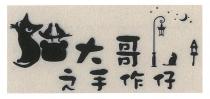 大哥
之手作仔